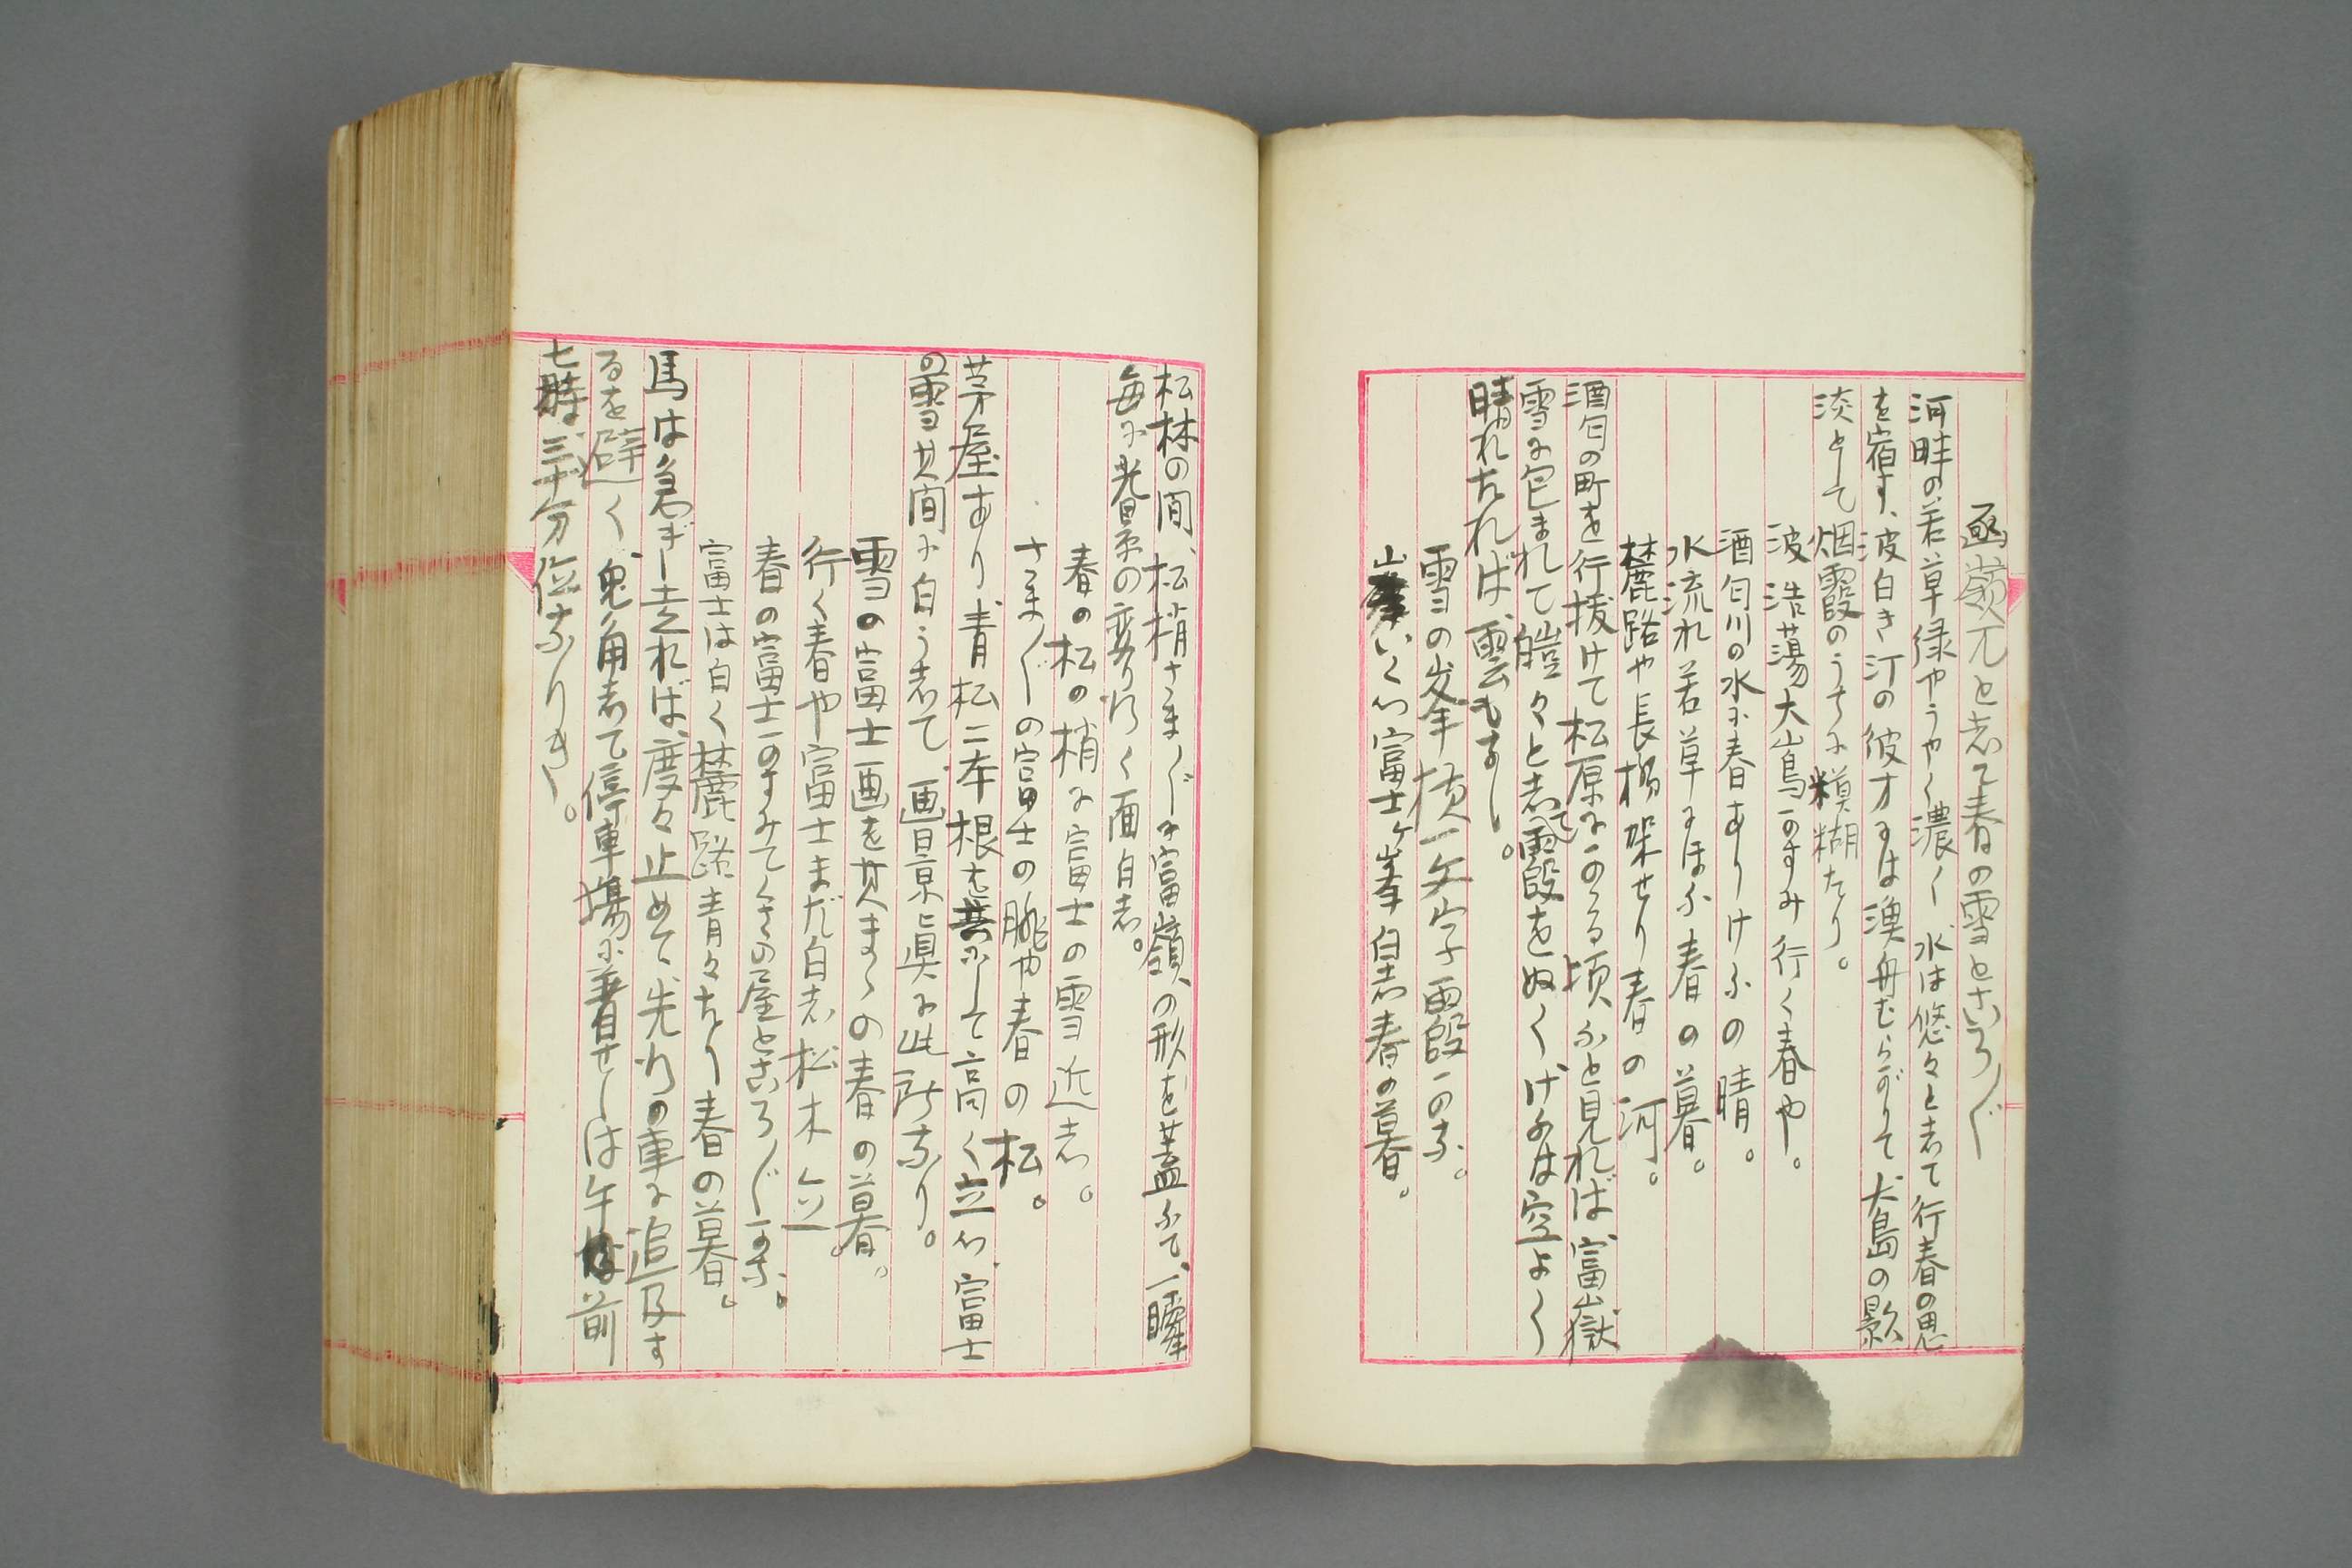 函嶺兀として春の雪ところ〴〵
河畔の若草緑やうやく濃く水は悠々として行春の思
を宿す、波白き汀の彼方には漁舟むらがりて大島の影
淡として烟霞のうちに糢糊たり。
波浩蕩大島かすみ行く春や。
酒匂川の水に春ありけふの晴。
水流れ若草にほふ春の暮。
麓路や長橋架せり春の河。
酒匂の町を行拔けて松原にかゝる頃ふと見れば富嶽
雪に包まれて皚々として霞をぬく、けふは空よく
晴れたれば、雲もなし。
雪の峯横一文字霞かな。
山いくつ富士ヶ峯白し春の暮。
松林の間、松梢さま〴〵に富嶺の形を蓋ふて、一瞬
毎に春景の変り行く面白し。
春の松の梢に富士の雪近し。
さま〴〵の富士の眺や春の松。
茅屋あり、青松二本根を共にして高く立つ、富士
の雪其間に白うして、画景眞に此所なり。
雪の富士画を其まゝの春の暮。
行く春や富士まだ白し松木立。
春の富士かすみてくさの屋ところ〴〵かな。
富士は白く麓路青々たり春の暮。
馬は急ぎし走れば、度々止めて、先行の車に追及す
るを避く、兎角して停車場に着せしは午前
七時三十分位なりき。